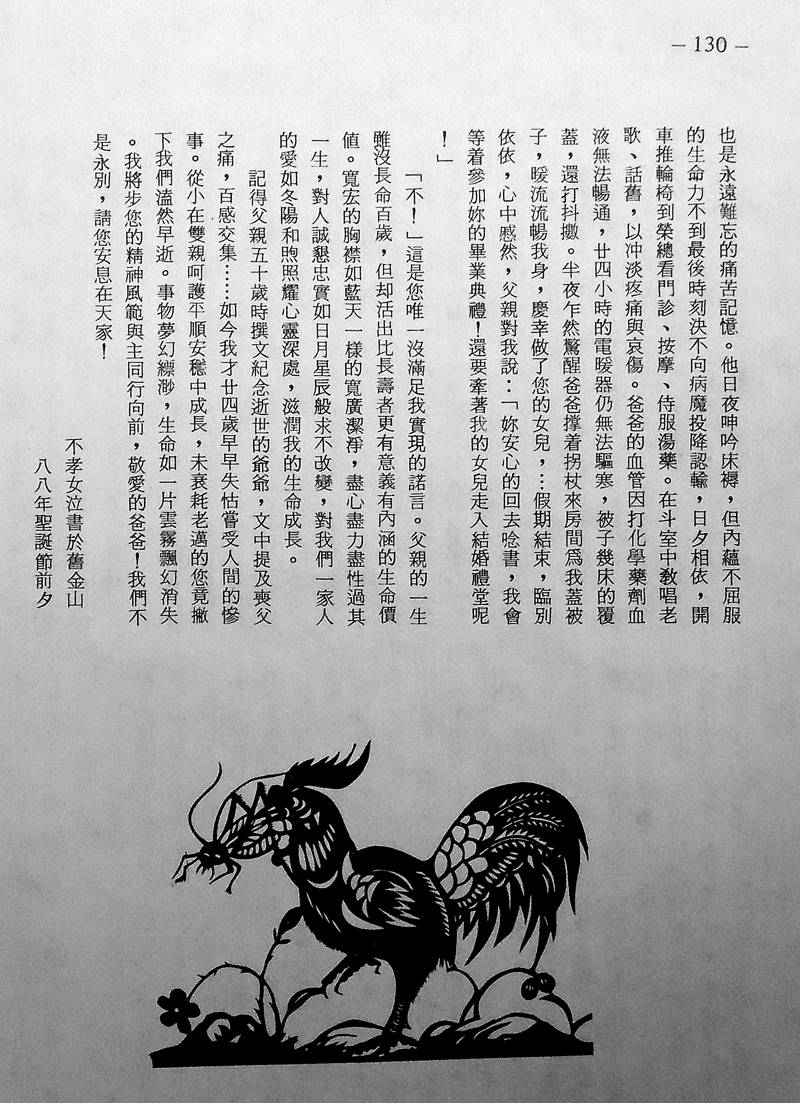 — 130 —
也是永遠難忘的痛苦記憶。他日夜呻吟床褥，但內蘊不屈服
的生命力不到最後時刻決不向病魔投降認輸，日夕相依，開
車推輪椅到榮總看門診、按摩、侍服湯藥。在斗室中教唱老
歌、話舊，以冲淡疼痛與哀傷。爸爸的血管因打化學藥劑血
液無法暢通，廿四小時的電暖器仍無法驅寒，被子幾床的覆
蓋，還打抖擻。半夜乍然驚醒爸爸撐着拐杖來房間爲我蓋被
子，暖流流暢我身，慶幸做了您的女兒，…假期結束，臨別
依依，心中慼然，父親對我說：「妳安心的回去唸書，我會
等着參加妳的畢業典禮！還要牽著我的女兒走入結婚禮堂呢
！」
「不！」這是您唯一沒滿足我實現的諾言。父親的一生
雖沒長命百歲，但却活出比長壽者更有意義有內涵的生命價
值。寬宏的胸襟如藍天一樣的寬廣潔淨，盡心盡力盡性過其
一生，對人誠懇忠實如日月星辰般求不改變，對我們一家人
的愛如冬陽和煦照耀心靈深處，滋潤我的生命成長。
記得父親五十歲時撰文紀念逝世的爺爺，文中提及喪父
之痛，百感交集……如今我才廿四歲早早失怙嘗受人間的慘
事。從小在雙親呵護平順安穩中成長，未衰耗老邁的您竟撇
下我們溘然早逝。事物夢幻縹渺，生命如一片雲霧飄幻消失
。我將步您的精神風範與主同行向前，敬愛的爸爸！我們不
是永別，請您安息在天家！
不孝女泣書於舊金山
八八年聖誕節前夕